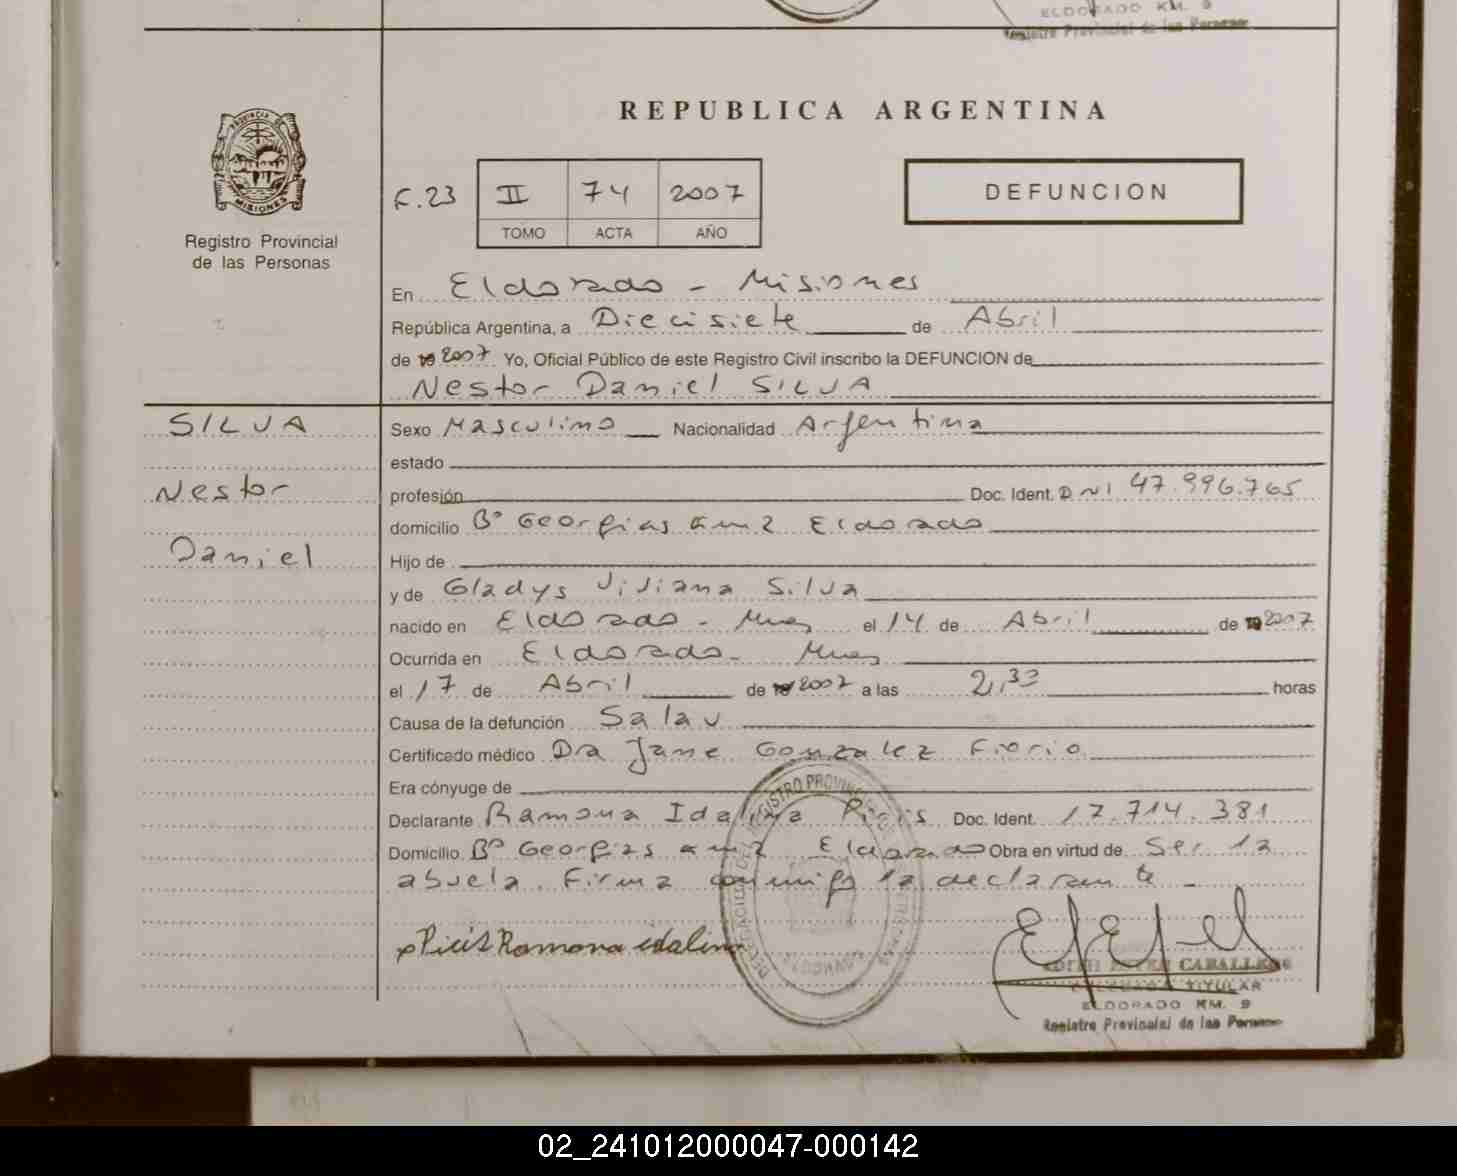 ELDORADO KM. 9
Registro Provincial de las Personas
PROVINCIA DE
MISIONES
Registro Provincial
de las Personas
REPUBLICA ARGENTINA
F.23 II 74 2007
TOMO ACTA AÑO
DEFUNCION
En Eldorado - Misiones
República Argentina, a Diecisiete de Abril
de 2007 Yo, Oficial Público de este Registro Civil inscribo la DEFUNCION de
Nestor Daniel SILVA
SILVA
Nestor
Daniel
Sexo Masculino Nacionalidad Argentina
estado
profesión Doc. Ident. DNI 47.996.765
domicilio Bº Georgias km 2 Eldorado
Hijo de
y de Gladys Viviana Silva
nacido en Eldorado - Mnes el 14 de Abril de 2007
Ocurrida en Eldorado - Mnes
el 17 de Abril de 2007 a las 2,33 horas
Causa de la defunción Salav
Certificado médico Dra Jane Gonzalez Fiorio
Era cónyuge de
Declarante Ramona Idalina Piris Doc. Ident. 17.714.381
Domicilio Bº Georgias km 2 Eldorado Obra en virtud de Ser la
abuela. Firma conmigo la declarante -
Ramona idalina
CABALLERO
TITULAR
ELDORADO KM. 9
Registro Provincial de las Personas
02_241012000047-000142